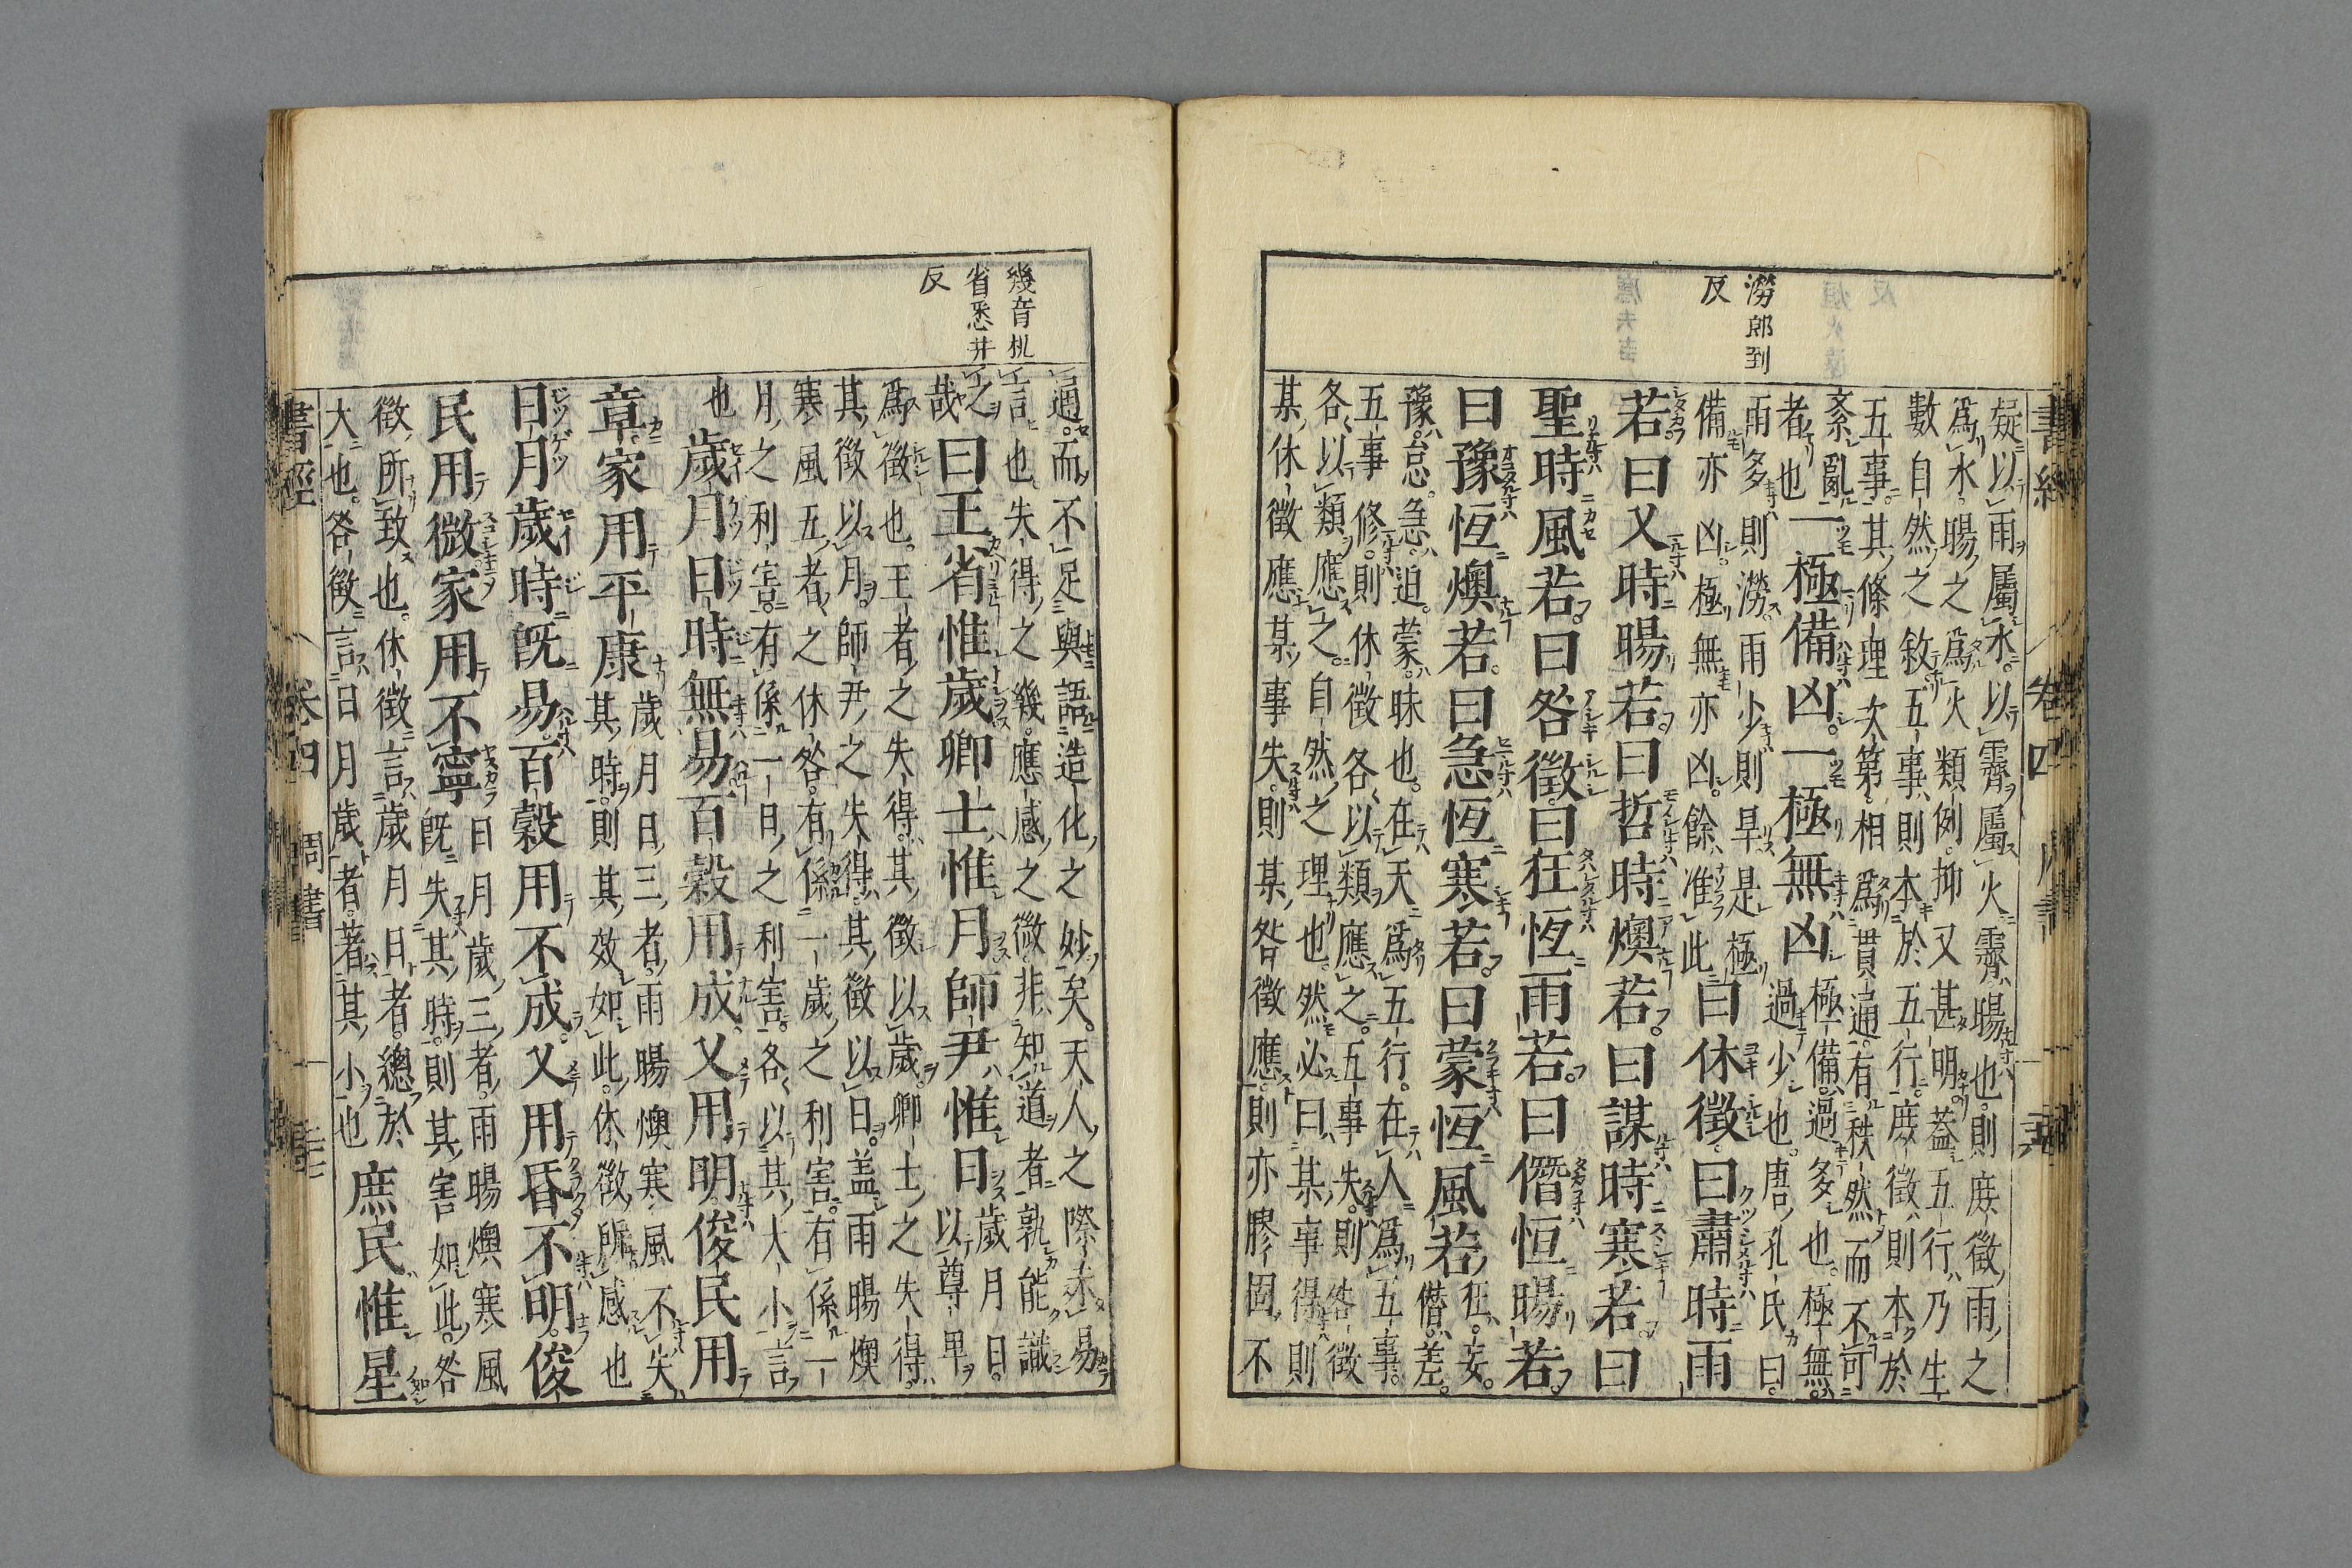 書經　卷四　周書
澇郎到
反
疑以雨屬水以霽屬火霽暘也則庶徵雨之
爲水暘之爲火類例抑又甚明蓋五行乃生
數自然之敘五事則本於五行庶徵則本於
五事其條理次第相爲貫通有秩然而不可
紊亂者也一極備凶一極無凶極備過多也極無過少也唐孔氏曰
雨多則澇雨少則旱是極備亦凶極無亦凶餘准此曰休徵曰肅時雨
若曰乂時暘若曰哲時燠若曰謀時寒若曰
聖時風若曰咎徵曰狂恆雨若曰僭恒暘若
曰豫恆燠若曰急恆寒若曰蒙恆風若狂妄僭差
豫怠急迫蒙昧也在天爲五行在人爲五事
五事修則休徵各以類應之五事失則咎徵
各以類應之自然之理也然必曰某事得則
某休徵應某事失則某咎徵應則亦膠固不
幾音机
省悉井
反
通而不足與語造化之妙矣天人之際未易
言也失得之幾應感之微非知道者孰能識
之哉曰王省惟歲卿士惟月師尹惟日歲月日以尊卑
爲徵也王者之失得其徵以歲卿士之失得
其徵以月師尹之失得其徵以日蓋雨暘燠
寒風五者之休咎有係一歲之利害有係一
月之利害有係一日之利害各以其大小言
也歲月日時無易百穀用成乂用明俊民用
章家用平康歲月日三者雨暘燠寒風不失其時則其效如此休徵所感也
日月歲時旣易百穀用不成乂用昏不明俊
民用微家用不寧日月歲三者雨暘燠寒風旣失其時則其害如此咎
徵所致也休徵言歲月日者總於大也咎徵言日月歲者著其小也庶民惟星
書經　卷四　周書